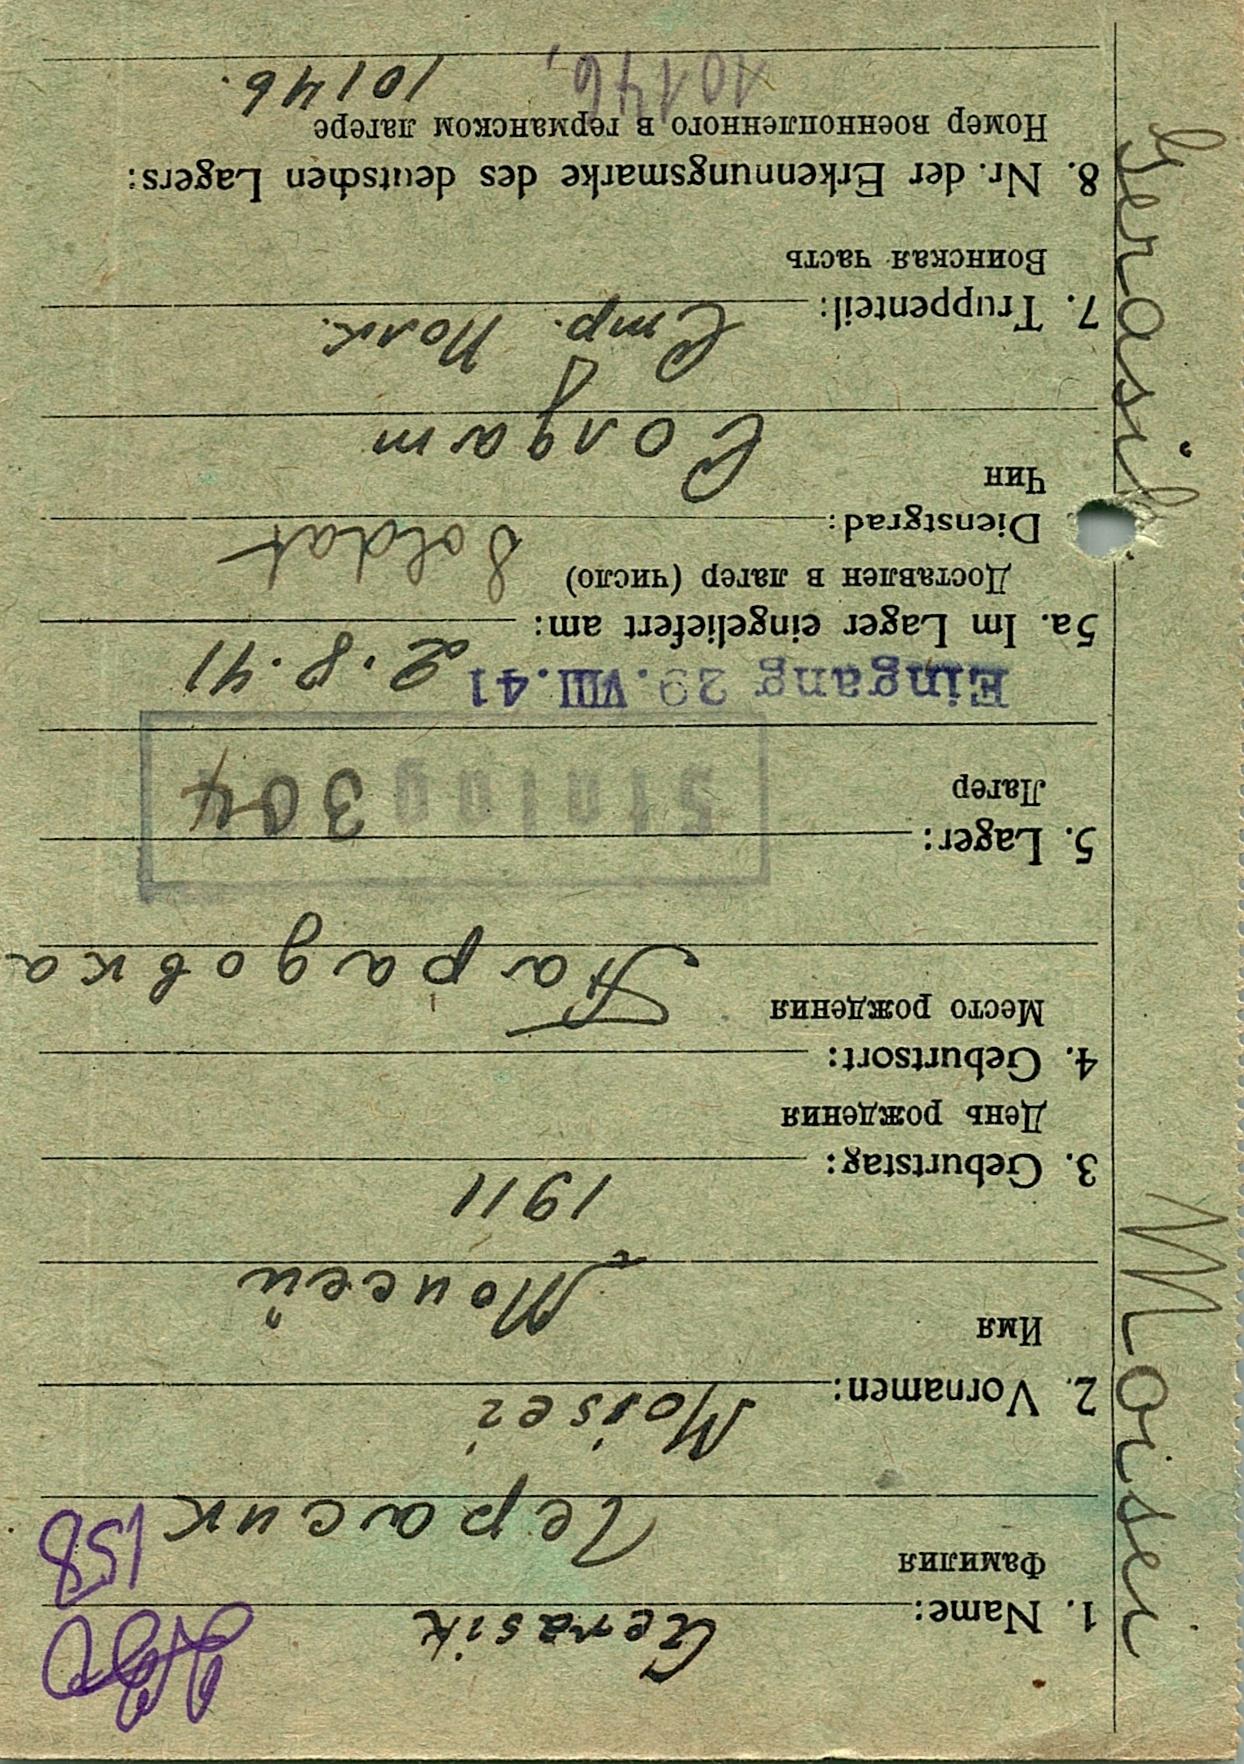 158
1. Name: Gerasik
Фамилия Герасик
2. Vornamen: Moisei
Имя Моисей
3. Geburtstag: 1911
День рождения
4. Geburtsort:
Место рождения Парадовка
5. Lager: Stalag 304
Лагер
Eingang 29. VIII. 41
5a. Im Lager eingeliefert am: 2.8.41
Доставлен в лагер (число)
Dienstgrad: Soldat
Чин Солдат
7. Truppenteil: Стр. Полк.
Воинская часть
8. Nr. der Erkennungsmarke des deutschen Lagers:
Номер военнопленного в германском лагере
10146,
10146.
Moisei Gerasik